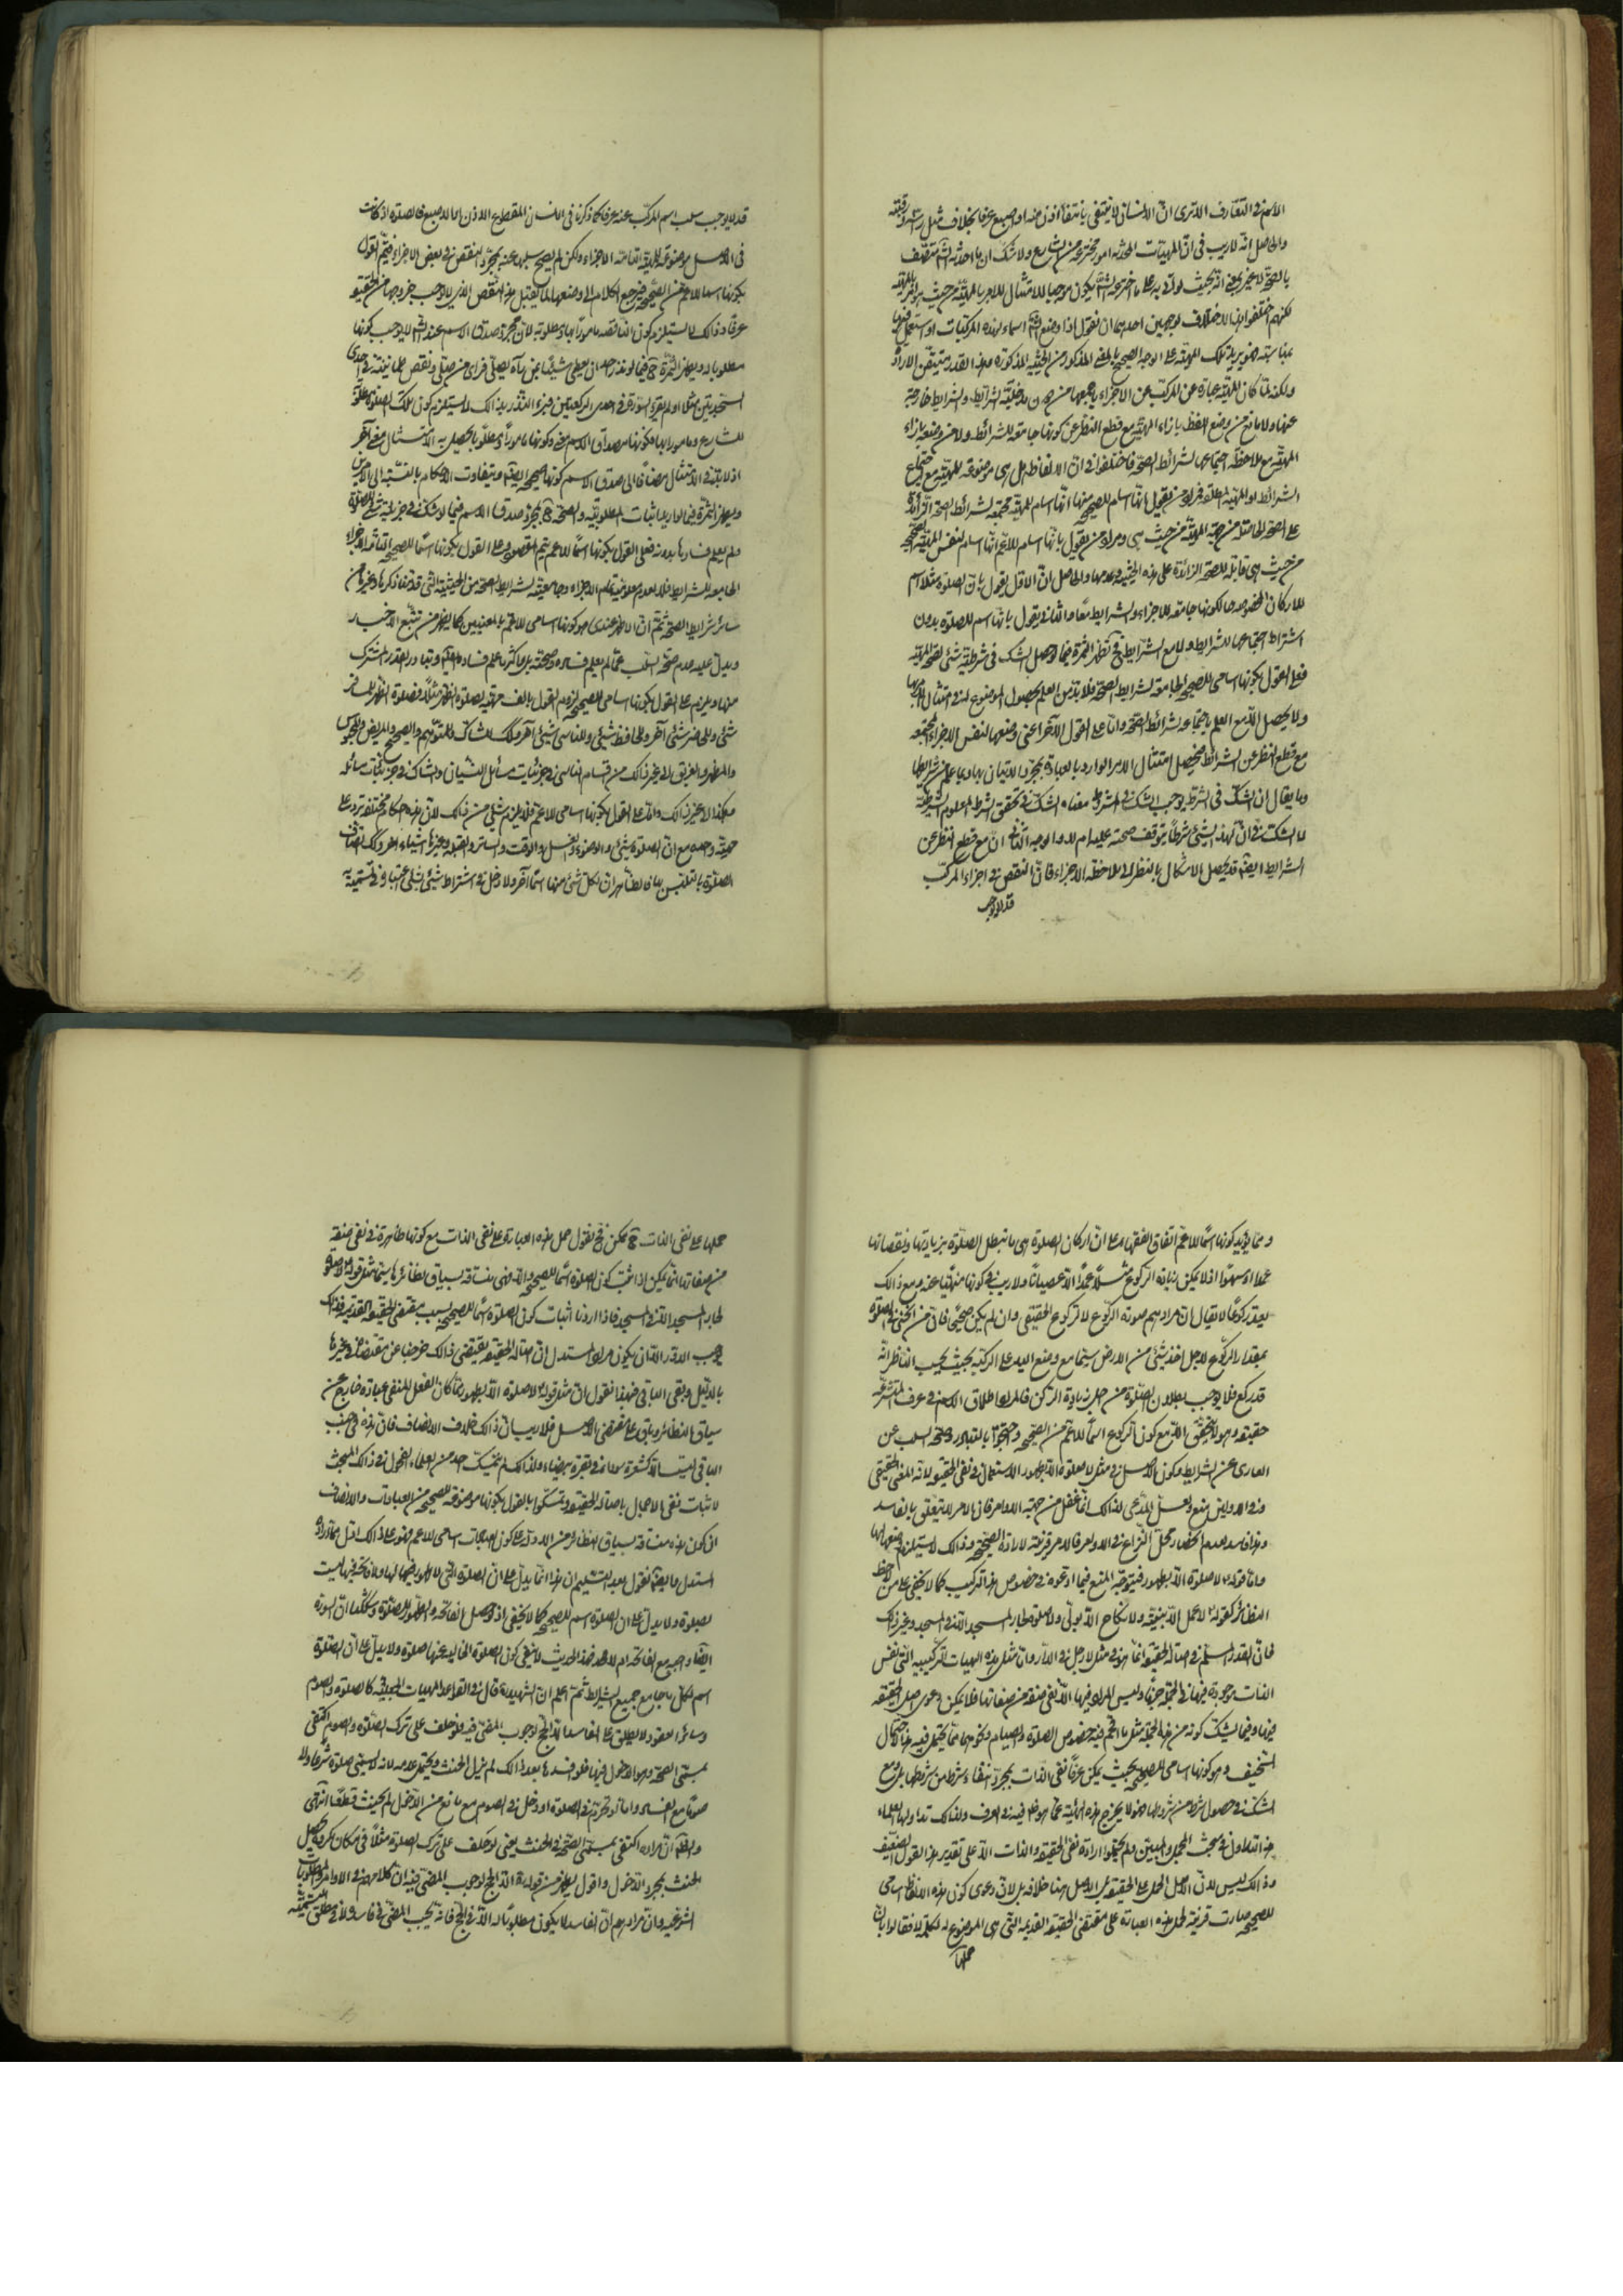 الاسم في التعارف الا ترى انّ الانسان لا ينتفي بانتفاء اذن منه او اصبع عرفا بخلاف مثل راسه او رقبته
والحاصل انّه لا ريب في انّ المهيات المحدثة امور مخترعة من الشارع ولا شك ان ما احدثه الشارع متصف
بالصحّة لا غير بمعنى انّه بحيث لو اتى به على ما اخترعه الشارع يكون موجبا للامتثال للامر بالمهيّة من حيث هو امر بالمهيّة
لكنهم اختلفوا هنا لاختلاف لوجهين احدهما ان نقول اذا وضع الشارع اسماء لهذه المركبات او استعملها فيها
بمناسبته فهو يريد تلك المهيّة على الوجه الصحيح بالمعنى المذكور من الحيثية المذكورة وهذا القدر متيقن الارادة
ولكنه لمّا كان المهيّة عبارة عن المركّب عن الاجزاء بجميعها من دون مدخليّة الشرائط والشرايط خارجة
عنها ولا مانع من وضع اللفظ بازاء المهيّة مع قطع النظر عن كونها جامعة للشرائط ولا من وضعه بازاء
المهيّة مع ملاحظة اجتماعها لشرائط الصحّة فاختلفوا في انّ الالفاظ هل هي موضوعة للمهيّة مع اجتماع
الشرائط او للمهيّة المطلقة فمراد من يقول بانّها اسام للصحيحة منها انّها اسام للمهيّة مجتمعة لشرائط الصحّة الزائدة
على الصحّة الحاصلة من جهة المهيّة من حيث هي ومراد من يقول بانّها اسام للاعم انّها اسام لنفس المهيّة الصحيحة
من حيث هي قابلة للصحّة الزائدة على هذه الحيثية وعدمها والحاصل انّ الاوّل يقول بان الصلوة مثلا اسم
للاركان المخصوصة حال كونها جامعة للاجزاء والشرايط معًا والثاني يقول بانّها اسم للصلوة بدون
اشتراط اجتماعها للشرايط ولا مع الشرايط فح تظهر الثمرة فيما لو حصل الشك في شرطيّة شئ لصحّة المهيّة
فعلى القول بكونها اسامي للصحيحة الجامعة لشرايط الصحّة فلا بدّ من العلم بحصول الموضوع له في امتثال الامر بها
ولا يحصل الّا مع العلم باجتماعه لشرائط الصحّة وامّا على القول الآخر اعني وضعها لنفس الاجزاء المجتمعة
مع قطع النظر عن الشرائط فيحصل امتثال الامر الوارد بالعبادة بمجرّد الاتيان بها وبما علم من شرائطها
وما يقال ان الشكّ في الشرط يوجب الشك في المشروط معناه الشكّ في تحقق الشرط المعلوم الشرطيّة
لا الشكّ في انّ لهذا الشئ شرطًا يتوقف صحته عليه ام لا والوجه الثاني انّ مع قطع النظر عن
الشرائط ايضًا قد يحصل الاشكال بالنظر الى ملاحظة الاجزاء فانّ النقص في اجزاء المركّب
قد لا يوجب
قد لا يوجب سلب اسم المركّب عنه عرفا كما ذكرنا في الانسان المقطوع الاذن او الاصبع فالصلوة اذ كانت
في الاصل موضوعة للمهيّة التامّة الاجزاء ولكن لم يصح سلبها عنه بمجرّد النقص في بعض الاجزاء فيتم القول
بكونها اسما للاعم من الصحيحة فيرجع الكلام الى وضعها لما يقبل هذا النقص الذي لا يوجب خروجها من الحقيقة
عرفًا وذلك لا يستلزم كون الناقصة مامورًا بها ومطلوبة لانّ مجرّد صدق الاسم عند الشارع لا يوجب كونها
مطلوبة له ويظهر الثمرة ح فيما لو نذر احد ان يعطي شيئًا بمن رآه يصلّي فراى من صلّى ونقص طمانينته في احدى
السجدتين مثلا او لم يقرء السورة في احدى الركعتين فبرء النذر بذلك لا يستلزم كون تلك الصلوة مطلوبة
للشارع ومامورا بها فكونها مصداق الاسم معنى وكونها مامورًا ومطلوبا يحصل به الامتثال معنى آخر
اذ لا بدّ في الامتثال مضافًا الى صدق الاسم كونها صحيحة ايضًا ويتفاوت الاحكام بالنسبة الى الامرين
ويظهر الثمرة فيما لو اريد اثبات المطلوبيّة والصحّة ح بمجرّد صدق الاسم فيما لو شك في جزئيّة شئ للصلوة
ولم يعلم فسادها بدونه فعلى القول بكونها اسمًا للاعم يتم المقصود وعلى القول بكونها اسمًا للصحيحة التامّة الاجزاء
الجامعة للشرايط فلا لعدم معلوميّة تمام الاجزاء وجامعيّته لشرايط الصحّة من الحيثية التي قدّمنا ذكرها وغيرها من
سائر شرايط الصحّة ثمّ انّ الاظهر عندي هو كونها اسامي للاعم بالمعنيين كما يظهر من تتبّع الاخبار
ويدلّ عليه عدم صحّة السلب عمّا لم يعلم فساده وصحته بل واكثر ما علم فساده ايضا وتبادر القدر المشترك
منها ويلزم على القول بكونها اسامي للصحيحة لزوم القول بالف مهيّة لصلوة الظهر مثلًا فصلوة الظهر للمسافر
شئ وللحاضر شئ آخر وللحافظ شئ وللناسي شئ آخر وكذلك للشاك والمتوهّم والصحيح والمريض والمحبوس
والمضطر والغريق الى غير ذلك من اقسام الناسي في جزئيات مسائل النسيان والشاك في جزئيات مسائله
وهكذا الى غير ذلك وامّا على القول بكونها اسامي للاعم فلا يلزم شئ من ذلك لانّ هذه احكام مختلفة ترد على
مهيّة واحدة مع ان الصلوة شئ والوضوء والغسل والوقت والساتر والقبلة وغيرها اشياء اخر وكذلك اتصاف
الصلوة بالتلبّس بها فالظاهر ان لكل شئ منها اسمًا آخر ولا دخل في اشتراط شئ بشئ اعتباره في تسميته
وممّا يؤيد كونها اسمًا للاعم اتفاق الفقهاء على انّ اركان الصلوة هي ما تبطل الصلوة بزيادتها ونقصانها
عمدا او سهوًا اذ لا يمكن زيادة الركوع مثلًا عمدًا الّا عصيانًا ولا ريب في كونها منهيًا عنه ومع ذلك
يعدّ ركوعًا لا يقال انّ مرادهم صورة الركوع لا الركوع الحقيقي وان لم يكن صحيحًا فانّ من انحنى في الصلوة
بمقدار الركوع لاجل اخذ شئ من الارض سيّما مع وضع اليد على الركبة بحيث يحسب الناظر انّه
قد ركع فلا يوجب بطلان الصلوة من جهة زيادة الركن فالمراد اطلاق الاسم في عرف المتشرّعة
حقيقة وهو لا يتحقق الّا مع كون الركوع اسمًا للاعم من الصحيحة واحتجّوا بالتبادر وصحّة السلب عن
العاري عن الشرايط وكون الاصل في مثل لا صلوة الّا بطهور الاستعمال في نفي الحقيقة لانه المعنى الحقيقي
وفي الاولين منع ولعلّ المدّعي لذلك انّما غفل من جهة الاوامر فان الامر لا يتعلّق بالفاسد
وهذا فاسد لعدم انحصار محلّ النزاع في الاوامر فالامر قرينة لارادة الصحيحة وذلك لا يستلزم وضعها لها
وامّا قوله لا صلوة الّا بطهور فيتوجّه المنع فيما ادعوه في خصوص هذا التركيب كما لا يخفى على من لاحظ
النظائر كقوله لا عمل الّا بنيّة ولا نكاح الّا بولي ولا صلوة لجار المسجد الّا في المسجد وغير ذلك
فانّ القدر المسلّم في اصالة الحقيقة انّما هو في مثل لا رجل في الدّار وان مثل هذه الهيئات التركيبية التي نفس
الذات موجودة فيها في الجملة جزمًا وليس المراد فيها الّا نفي صفة من صفاتها فلا يمكن دعوى اصل الحقيقة
فيها وفيما يشك كونه من هذه الجملة مثل ما نحن فيه خصوص الصلوة والصيام ونحوهما ممّا يحتمل فيه هذا الاحتمال
السخيف وهو كونها اسامي للصحيحة بحيث يمكن عرفًا نفي الذات بمجرّد انتفاء شرط من شروطها بل ومع
الشكّ في حصول شرط من شروطها فهو لا يخرج هذه الهيئة عمّا هو ظاهر فيه في العرف ولذلك تداولها العلماء
هذا التداول في مبحث المجمل والمبيّن ولم يحتملوا ارادة نفي الحقيقة والذات الّا على تقدير هذا القول الضعيف
وذلك ليس لانّ الاصل الحمل على الحقيقة بل الاصل هنا خلافه بل لانّ دعوى كون هذه الالفاظ اسامي
للصحيحة صارت قرينة لحمل هذه العبارة على مقتضى الحقيقة القديمة التي هي الموضوع له لكلمة لا فقالوا بانّ
حملها
حملها على نفي الذات ح ممكن فح نقول حمل هذه العبارة على نفي الذات مع كونها ظاهرة في نفي صفة
من صفاتها انّما يمكن اذا ثبت كون الصلوة اسمًا للصحيحة والّا فهي منساقة بسياق نظائرها سيّما مثل قوله لا صلوة
لجار المسجد الّا في المسجد فاذا اردنا اثبات كون الصلوة اسمًا للصحيحة بسبب مقتضى الحقيقة القديمة فذلك
يوجب الدور الّا ان يكون مراد المستدل انّ اصالة الحقيقة يقتضي ذلك خرجنا عن مقتضاه في غيرها
بالدليل وبقي الباقي فلهذا نقول انّ مثل قوله لا صلوة الّا بطهور ممّا كان الفعل المنفي عبادة خارج عن
سياق النظائر وباق على مقتضى الاصل فلا ريب ان ذلك خلاف الانصاف فان هذه في جنب
الباقي ليست الّا كشعرة سوداء في بقرة بيضاء ولذلك لم يتمسّك احد من العلماء الفحول في ذلك المبحث
لاثبات نفي الاجمال باصالة الحقيقة وتمسّكوا بالقول بكونها موضوعة للصحيحة من العبادات والانصاف
ان كون هذه منساقة بسياق نظائرها من الادلّة على كون العبادات اسامي للاعم فهو على ذلك ادلّ ممّا اراده
المستدل وايضًا نقول بعد التسليم ان هذا انّما يدلّ على ان الصلوة التي لا طهور فيها اولا ولا فاتحة فيها ليست
بصلوة ولا يدلّ على ان الصلوة اسم للصحيحة كما لا يخفى اذ لو حصل الفاتحة والطهور للصلوة وشككنا ان السورة
ايضًا واجبة مع الفاتحة ام لا فهذا الحديث لا ينفي كون الصلوة الخالية عنها صلوة ولا يدلّ على انّ الصلوة
اسم لكلّ ما جامع جميع الشرائط ثمّ اعلم ان الشهيد قال في القواعد المهيات الجعليّة كالصلوة والصوم
وسائر العقود لا يطلق على الفاسد الّا الحج لوجوب المضيّ فيه فلو حلف على ترك الصلوة والصوم اكتفى
بمسمّى الصحّة وهو الدخول فيها فلو افسدها بعد ذلك لم يزل الحنث ويحتمل عدمه لانه لا يسمّى صلوة شرعًا ولا
صومًا مع الفساد وامّا لو تحرّم في الصلوة او دخل في الصوم مع مانع من الدخول لم يحنث قطعًا انتهى
والظ انّ مراده اكتفى بمسمّى الصحّة في الحنث يعني لو حلف على ترك الصلوة مثلًا في مكان مكروه يحصل
الحنث بمجرّد الدخول واقول يظهر من قوله ره الّا الحج لوجوب المضيّ فيه انّ كلامهم في الاوامر والمطلوبات
الشرعية وانّ مرادهم انّ الفاسد لا يكون مطلوبًا له الّا في الحج فانه يجب المضيّ في فاسده ولا في مطلق التسمية